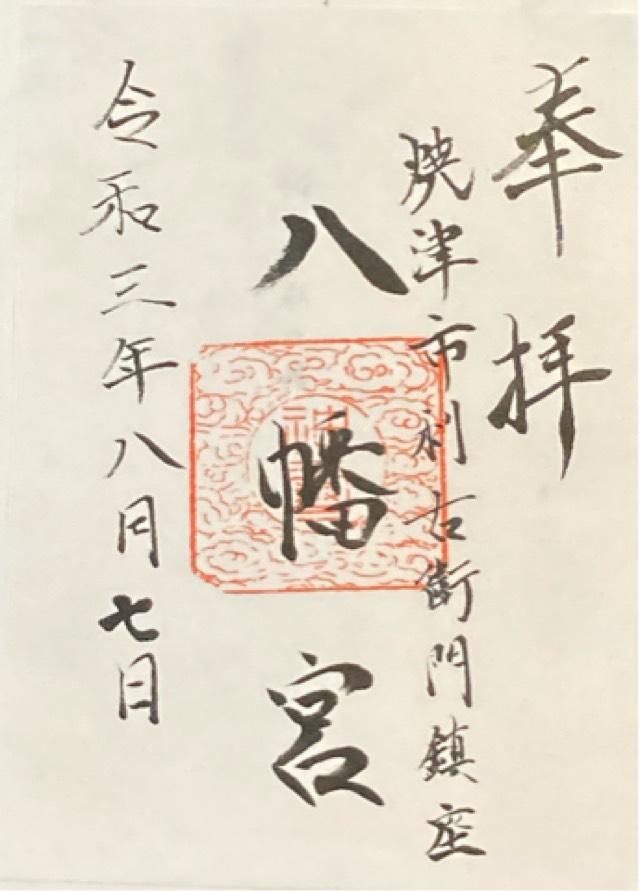 奉拝
焼津市利右衛門鎮座
八幡宮
令和三年八月七日